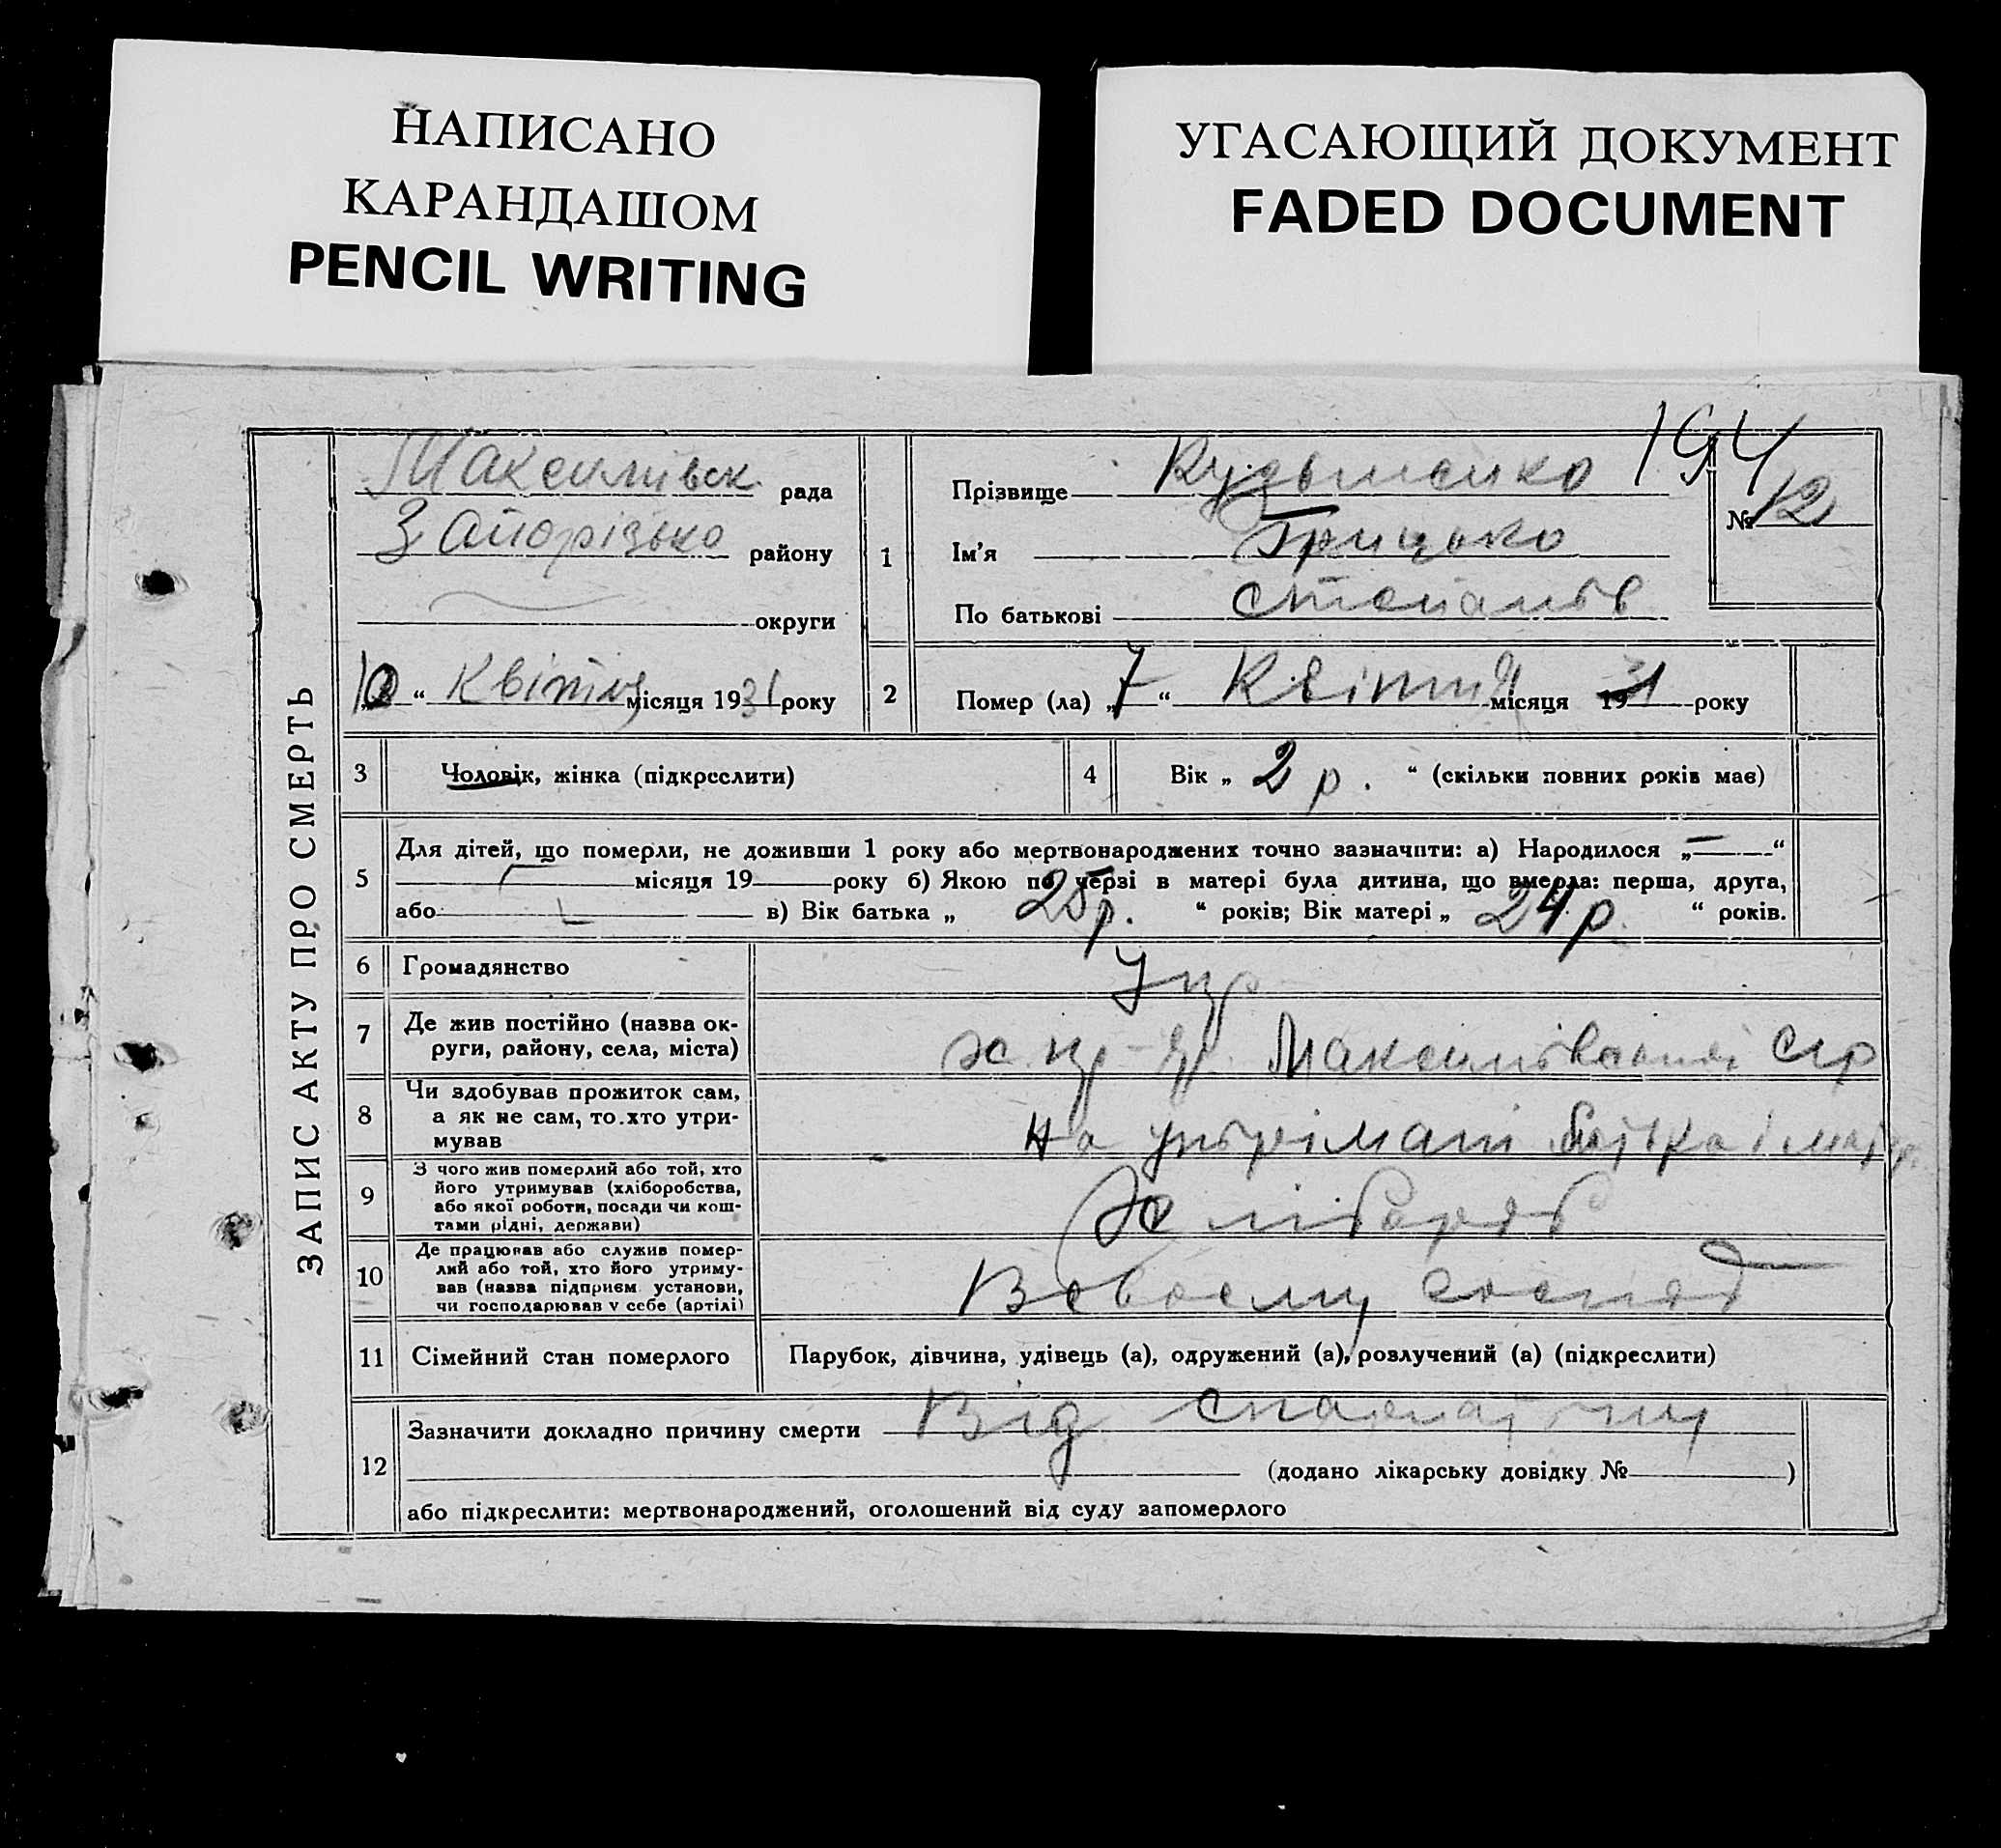 НАПИСАНО
КАРАНДАШОМ
PENCIL WRITING
УГАСАЮЩИЙ ДОКУМЕНТ
FADED DOCUMENT
ЗАПИС АКТУ ПРО СМЕРТЬ
Максимівск рада
Запорізько району
округи
10 “ Квітня місяця 1931 року
194
№ 12
1 Прізвище Кузьменко
Ім’я Грицько
По батькові Степанов
2 Помер (ла) „7“ Квітня місяця 1931 року
3 Чоловік, жінка (підкреслити)
4 Вік „ 2 р. “ (скільки повних років має)
5 Для дітей, що померли, не доживши 1 року або мертвонароджених точно зазначити: а) Народилося „ “
місяця 19 року б) Якою по черзі в матері була дитина, що вмерла: перша, друга,
або в) Вік батька „ 25 р. “ років; Вік матері „ 24 р. “ років.
6 Громадянство Укр
7 Де жив постійно (назва ок-
руги, району, села, міста)
Максимівської с/р
8 Чи здобував прожиток сам,
а як не сам, то хто утри-
мував
На утрімані батька і матер
9 З чого жив померлий або той, хто
його утримував (хліборобства,
або якої роботи, посади чи кош-
тами рідні, держави)
Хлібороб
10 Де працював або служив помер-
лий або той, хто його утриму-
вав (назва підприєм. установи,
чи господарював у себе (артілі)
В своему господ
11 Сімейний стан померлого Парубок, дівчина, удівець (а), одружений (а), розлучений (а) (підкреслити)
12 Зазначити докладно причину смерти Від
(додано лікарську довідку № )
або підкреслити: мертвонароджений, оголошений від суду запомерлого